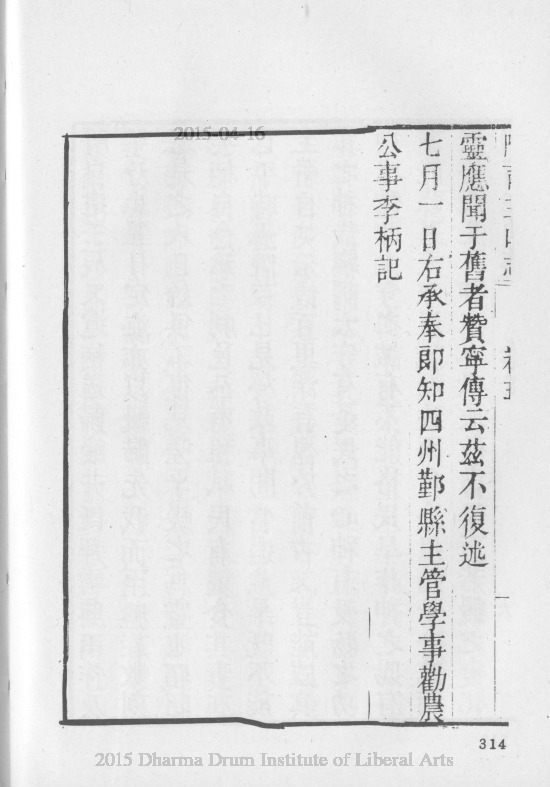 靈應聞于舊者贊寧傳云茲不復述
七月一日右承奉郎知四州鄞縣主管學事勸農
公事李柄記
2015-04-16
314
2015 Dharma Drum Institute of Liberal Arts